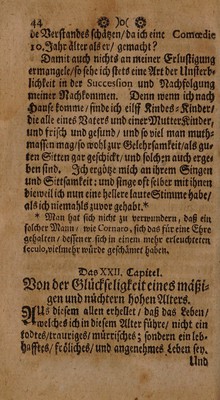 44 ❁ )o( ❁
de Verstandes schätzen/ da ich eine Comœdie
10. Jahr älter als er/ gemacht?
Damit auch nichts an meiner Erlustigung
ermangele/ so sehe ich stets eine Art der Unsterb-
lichkeit in der Succession und Nachfolgung
meiner Nachkommen. Denn wenn ich nach
Hause komme/ finde ich eilff Kindes-Kinder/
die alle eines Vaters und einer Mutter Kinder/
und frisch und gesund/ und so viel man muth-
massen mag/ so wohl zur Gelehrsamkeit/ als gu-
ten Sitten gar geschickt/ und solchen auch erge-
ben sind. Ich ergötze mich an ihrem Singen
und Sittsamkeit; und singe oft selber mit ihnen
dieweil ich nun eine hellere laute Stimme habe/
als ich niemahls zuvor gehabt.*
* Man hat sich nicht zu verwundern, daß ein
solcher Mann, wie Cornaro, sich das für eine Ehre
gehalten, dessen er sich in einem mehr erleuchteten
seculo, vielmehr würde geschämet haben.
Das XXII. Capitel.
Von der Glückseligkeit eines mäßi-
gen und nüchtern hohen Alters.
AUs diesem allen erhellet/ daß das Leben/
welches ich in diesem Alter führe/ nicht ein
todtes/ trauriges/ mürrisches; sondern ein leb-
hafftes/ fröliches/ und angenehmes Leben sey.
Und